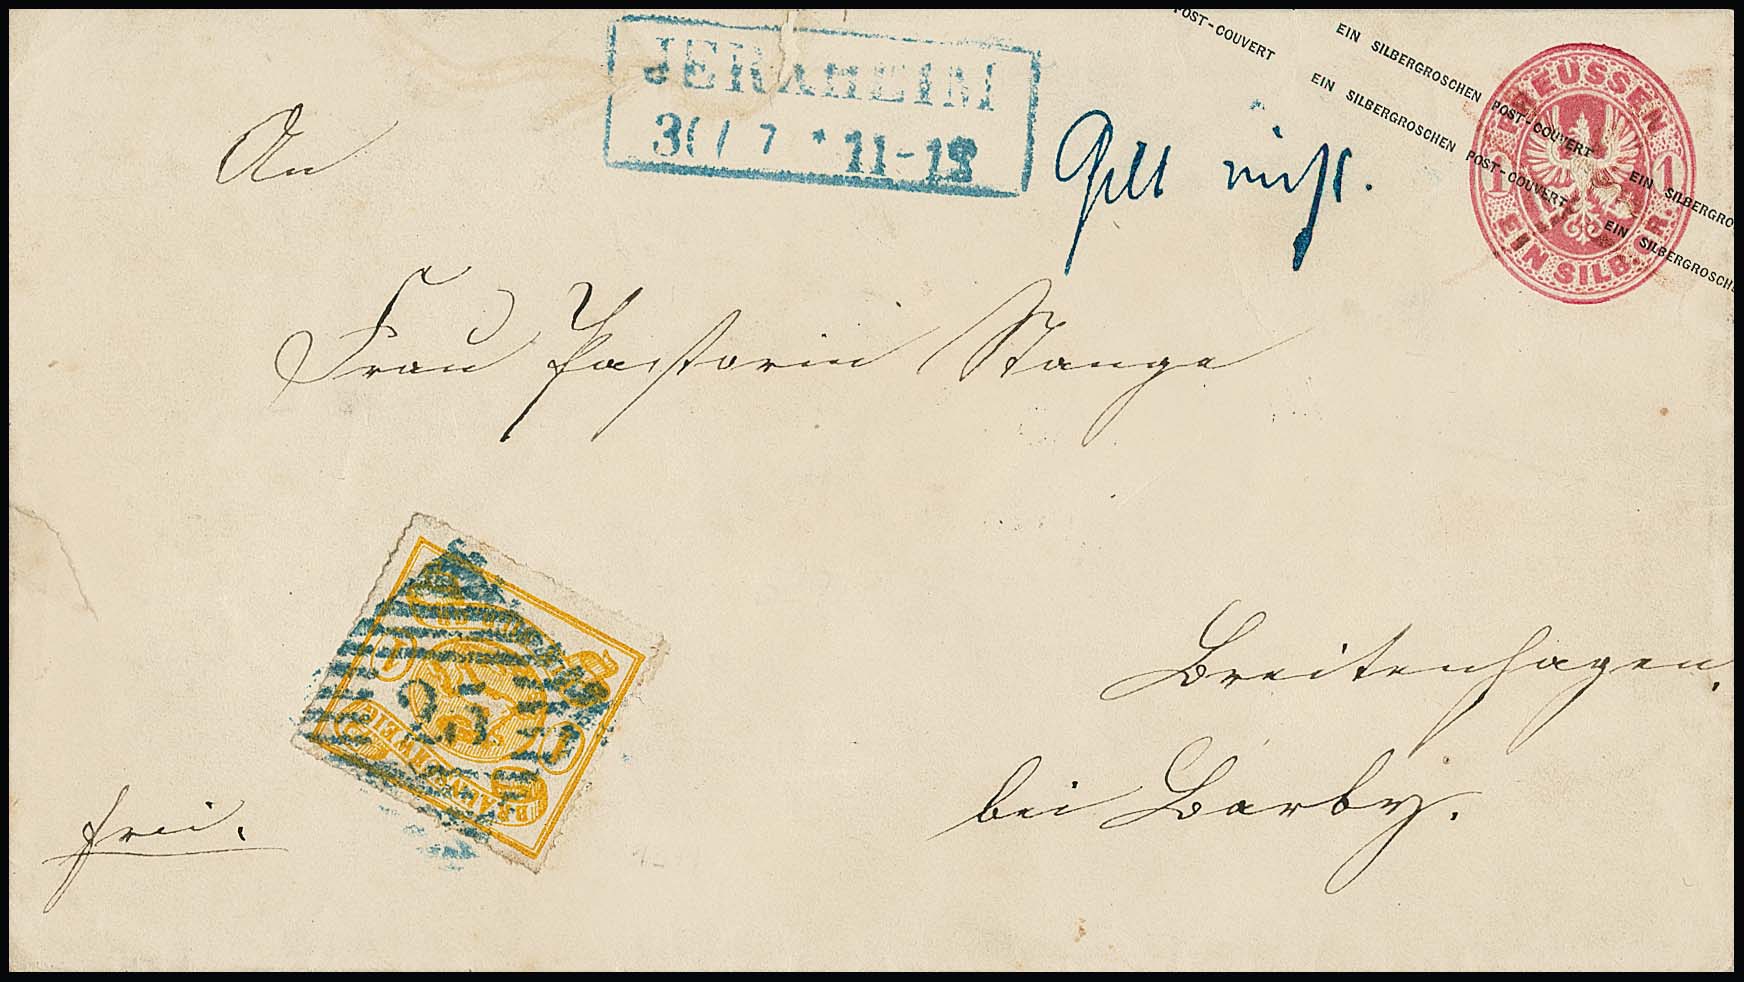 JERXHEIM
30/7 * 11-12
Gilt nicht.
POST-COUVERT EIN SILBERGROSCHEN POST-COUVERT EIN SILBERGRO
EIN SILBERGROSCHEN POST-COUVERT EIN SILBERGROSCHE
PREUSSEN
1 1
EIN SILB.GR.
An
Frau Pastorin Stange
Breitenhagen
bei Barby.
25
1 1
BRAUNSCHWEIG
frei.